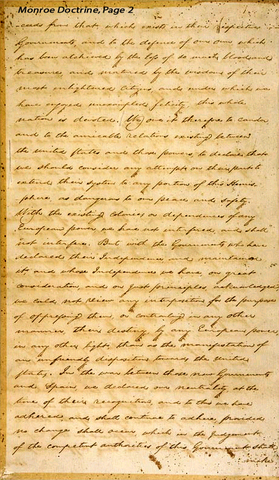 Monroe Doctrine, Page 2
ceeds from that, which exists in their respective
Governments, and to the defence of our own, which
has been atchieved by the loss of so much blood and
treasure, and matured by the wisdom of their
most enlightened citizens, and under which we
have enjoyed unexampled felicity, this whole
nation is devoted. We owe it therefore to candor
and to the amicable relations existing between
the united States and those powers to declare that
we should consider any attempt on their part to
extend their system to any portion of this Hemis-
phere as dangerous to our peace and safety.
With the existing Colonies or dependencies of any
European power we have not interfered, and shall
not interfere. But with the Governments who have
declared their Independence, and maintained
it, and whose Independence we have, on great
consideration, and on just principles, acknowledged,
we could not view any interposition for the purpose
of oppressing them, or controuling in any other
manner their destiny by any European power
in any other light than as the manifestation of
an unfriendly disposition towards the United
States. In the war between those new Governments
and Spain we declared our neutrality at the
time of their recognition, and to this we have
adhered, and shall continue to adhere, provided
no change shall occur which in the judgment
of the competent authorities of this Government shall
make